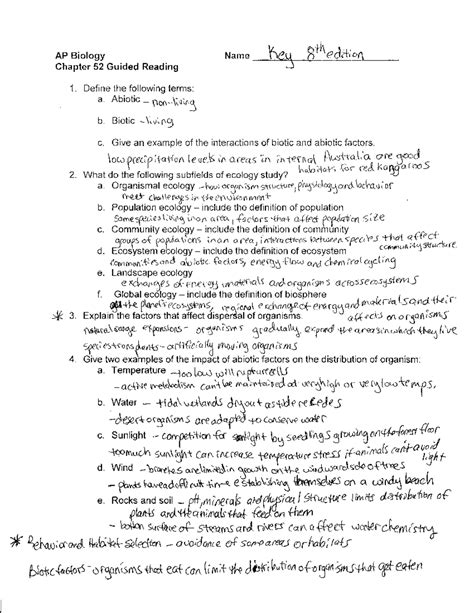 AP Biology Name Key 8th edition
Chapter 52 Guided Reading
1. Define the following terms:
a. Abiotic – non-living
b. Biotic – living
c. Give an example of the interactions of biotic and abiotic factors.
low precipitation levels in areas in internal Australia are good
habitats for red kangaroos
2. What do the following subfields of ecology study?
a. Organismal ecology – how organism structure, physiology and behavior
meet challenges in the environment
b. Population ecology – include the definition of population
same species living in an area, factors that affect population size
c. Community ecology – include the definition of community
groups of populations in an area, interactions between species that affect
community structure
d. Ecosystem ecology – include the definition of ecosystem
communities and abiotic factors, energy flow and chemical cycling
e. Landscape ecology
exchanges of energy, materials and organisms across ecosystems
f. Global ecology – include the definition of biosphere
all the planet's ecosystems, regional exchange of energy and materials and their
affects on organisms
* 3. Explain the factors that affect dispersal of organisms
natural range expansions – organisms gradually expand the areas in which they live
species transplants – artificially moving organisms
4. Give two examples of the impact of abiotic factors on the distribution of organism:
a. Temperature – too low will rupture cells
– active metabolism can't be maintained at very high or very low temps.
b. Water – tidal wetlands dry out as tide recedes
– desert organisms are adapted to conserve water
c. Sunlight – competition for sunlight by seedlings growing on the forest floor
too much sunlight can increase temperature stress if animals can't avoid
light
d. Wind – branches are limited in growth on the windward side of trees
– plants have a difficult time establishing themselves on a windy beach
e. Rocks and soil – pH, minerals and physical structure limits distribution of
plants and the animals that feed on them
– bottom surface of streams and rivers can affect water chemistry
* Behavior and Habitat Selection – avoidance of some areas or habitats
Biotic factors – organisms that eat can limit the distribution of organisms that get eaten